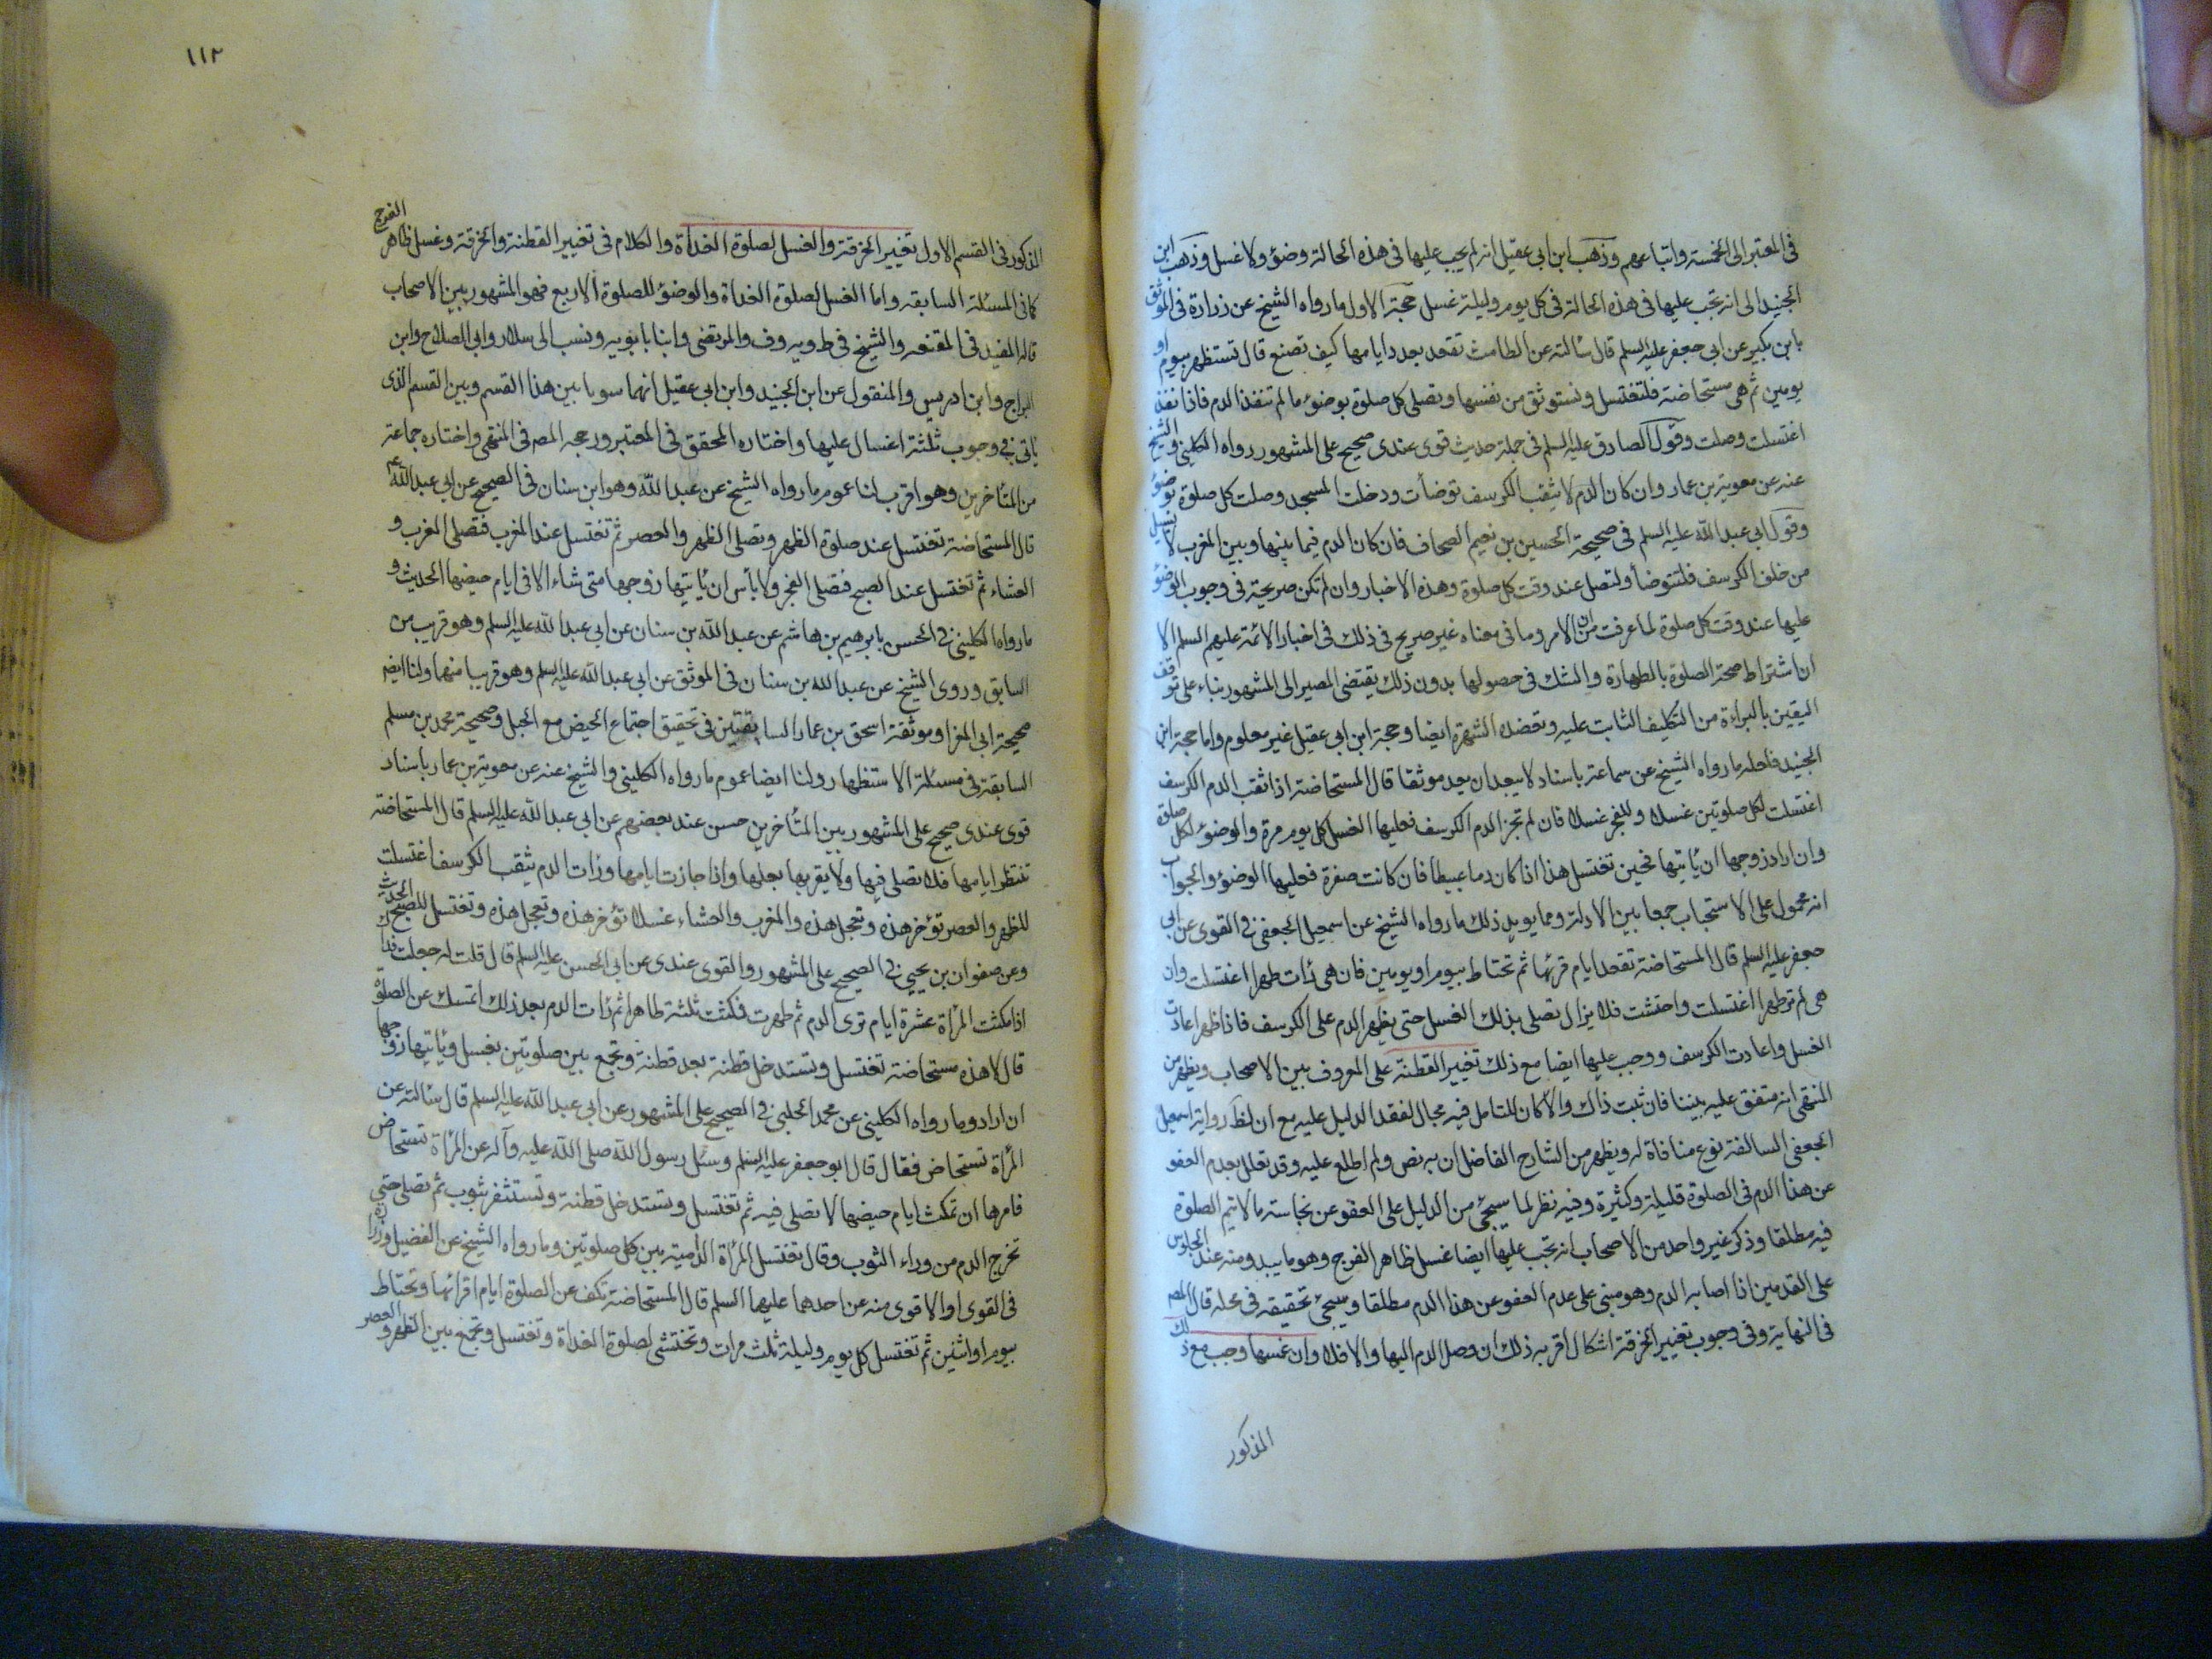 في المعتبر الى الخمسة واتباعهم وذهب ابن ابي عقيل انه لم يجب عليها في هذه الحالة وضوء ولا غسل وذهب ابن
الجنيد الى انه تجب عليها في هذه الحالة في كل يوم وليلة غسل حجة الاول ما رواه الشيخ عن زرارة في الموثق
بابن بكير عن ابي جعفر عليه السلم قال سألته عن الطامث تقعد بعدد ايامها كيف تصنع قال تستظهر بيوم او
يومين ثم هي مستحاضة فلتغتسل وتستوثق من نفسها وتصلي كل صلوة بوضوء ما لم تنفذ الدم فاذا نفذ
اغتسلت وصلت وقول الصادق عليه السلم في جملة حديث قوى عندى صحيح على المشهور رواه الكليني والشيخ
عنه عن معوية بن عمار وان كان الدم لا يثقب الكرسف توضأت ودخلت المسجد وصلت كل صلوة بوضوء
وقول ابي عبد الله عليه السلم في صحيحة الحسين بن نعيم الصحاف فان كان الدم فيما بينها وبين المغرب لا يسيل
من خلف الكرسف فلتتوضأ ولتصل عند وقت كل صلوة وهذه الاخبار وان لم تكن صريحة في وجوب الوضوء
عليها عند وقت كل صلوة لما عرفت من ان الامر وما في معناه غير صريح في ذلك في اخبار الائمة عليهم السلم الا
ان اشتراط صحة الصلوة بالطهارة والشك في حصولها بدون ذلك يقتضي المصير الى المشهور بناء على توقف
اليقين بالبراءة من التكليف الثابت عليه وتعضده الشهرة ايضا وحجة ابن ابي عقيل غير معلوم واما حجة ابن
الجنيد فلعله ما رواه الشيخ عن سماعة باسناد لا يبعد ان يعد موثقا قال المستحاضة اذا ثقب الدم الكرسف
اغتسلت لكل صلوتين غسلا وللفجر غسلا فان لم تجز الدم الكرسف فعليها الغسل كل يوم مرة والوضوء لكل صلوة
وان اراد زوجها ان يأتيها فحين تغتسل هذا اذا كان دما عبيطا فان كانت صفرة فعليها الوضوء والجواب
انه محمول على الاستحباب جمعا بين الادلة ومما يويد ذلك ما رواه الشيخ عن اسمعيل الجعفي في القوى عن ابي
جعفر عليه السلم قال المستحاضة تقعد ايام قرئها ثم تحتاط بيوم او يومين فان هي رأت طهرا اغتسلت وان
هي لم تر طهرا اغتسلت واحتشت فلا يزال تصلي بذلك الغسل حتى يظهر الدم على الكرسف فاذا ظهر اعادت
الغسل واعادت الكرسف ووجب عليها ايضا مع ذلك تغيير القطنة على المعروف بين الاصحاب ويظهر من
المنتهى انه متفق عليه بيننا فان ثبت ذاك والا كان للتامل فيه مجال لفقد الدليل عليه مع ان لظ رواية اسمعيل
الجعفي السالفة نوع منافاة له ويظهر من الشارح الفاضل ان به نص ولم اطلع عليه وقد تعلل بعدم العفو
عن هذا الدم في الصلوة قليلة وكثيرة وفيه نظر لما سيجئ من الدليل على العفو عن نجاسته ما لا تتم الصلوة
فيه مطلقا وذكر غير واحد من الاصحاب انه تجب عليها ايضا غسل ظاهر الفرج وهو ما يبدو منه عند الجلوس
على القدمين اذا اصابه الدم وهو مبني على عدم العفو عن هذا الدم مطلقا وسيجئ تحقيقه في محله قال المصـ
في النهاية وفي وجوب تغيير الخرقة اشكال اقربه ذلك ان وصل الدم اليها والا فلا وان غمسها وجب مع ذلك
المذكور
١١٢
المذكور في القسم الاول تغيير الخرقة والغسل لصلوة الغداة والكلام في تغيير القطنة والخرقة وغسل ظاهر الفرج
كما في المسئلة السابقه واما الغسل لصلوة الغداة والوضوء للصلوة الاربع فهو المشهور بين الاصحاب
قاله المفيد في المقنعه والشيخ في ط ويه وف والمرتضى وابنا بابويه ونسب الى سلار وابي الصلاح وابن
البراج وابن ادريس والمنقول عن ابن الجنيد وابن ابي عقيل انهما سويا بين هذا القسم وبين القسم الذى
يأتى في وجوب ثلثة اغسال عليها واختاره المحقق في المعتبر ورجحه المصـ في المنتهى واختاره جماعة
من المتأخرين وهو اقرب لنا عموم ما رواه الشيخ عن عبد الله وهو ابن سنان في الصحيح عن ابي عبد الله ع
قال المستحاضة تغتسل عند صلوة الظهر وتصلي الظهر والعصر ثم تغتسل عند المغرب فتصلي المغرب و
العشاء ثم تغتسل عند الصبح فتصلي الفجر ولا بأس ان يأتيها زوجها متى شاء الا في ايام حيضها الحديث و
ما رواه الكليني في الحسن بابرهيم بن هاشم عن عبد الله بن سنان عن ابي عبد الله عليه السلم وهو قريب من
السابق وروى الشيخ عن عبد الله بن سنان في الموثق عن ابي عبد الله عليه السلم وهو قريبا منهما ولنا ايضا
صحيحة ابي المغرا وموثقة اسحق بن عمار السابقتين في تحقيق اجتماع الحيض مع الحبل وصحيحة محمد بن مسلم
السابقة في مسئلة الاستظهار ولنا ايضا عموم ما رواه الكليني والشيخ عنه عن معوية بن عمار باسناد
قوى عندى صحيح على المشهور بين المتأخرين حسن عند بعضهم عن ابي عبد الله عليه السلم قال المستحاضة
تنتظر ايامها فلا تصلي فيها ولا يقربها بعلها واذا جازت ايامها ورأت الدم يثقب الكرسف اغتسلت
للظهر والعصر تؤخر هذه وتعجل هذه والمغرب والعشاء غسلا تؤخر هذه وتعجل هذه وتغتسل للصبح الحديث
وعن صفوان بن يحيى في الصحيح على المشهور والقوى عندى عن ابي الحسن عليه السلم قال قلت له جعلت فداك
اذا مكثت المرأة عشرة ايام ترى الدم ثم طهرت فمكثت ثلثة طاهرا ثم رأت الدم بعد ذلك اتمسك عن الصلوة
قال لا هذه مستحاضة تغتسل وتستدخل قطنة بعد قطنة وتجمع بين صلوتين بغسل ويأتيها زوجها
ان اراد وما رواه الكليني عن محمد الحلبي في الصحيح على المشهور عن ابي عبد الله عليه السلم قال سألته عن
المرأة تستحاض فقال قال ابو جعفر عليه السلم وسئل رسول الله صلى الله عليه وآله عن المرأة تستحاض
فامرها ان تمكث ايام حيضها لا تصلي فيه ثم تغتسل وتستدخل قطنة وتستثفر بثوب ثم تصلي حتى
تخرج الدم من وراء الثوب وقال تغتسل المرأة الدمية بين كل صلوتين وما رواه الشيخ عن الفضيل وزرارة
في القوى او الاقوى منه عن احدهما عليهما السلم قال المستحاضة تكف عن الصلوة ايام اقرائها وتحتاط
بيوم او اثنين ثم تغتسل كل يوم وليلة ثلث مرات وتحتشي لصلوة الغداة وتغتسل وتجمع بين الظهر والعصر